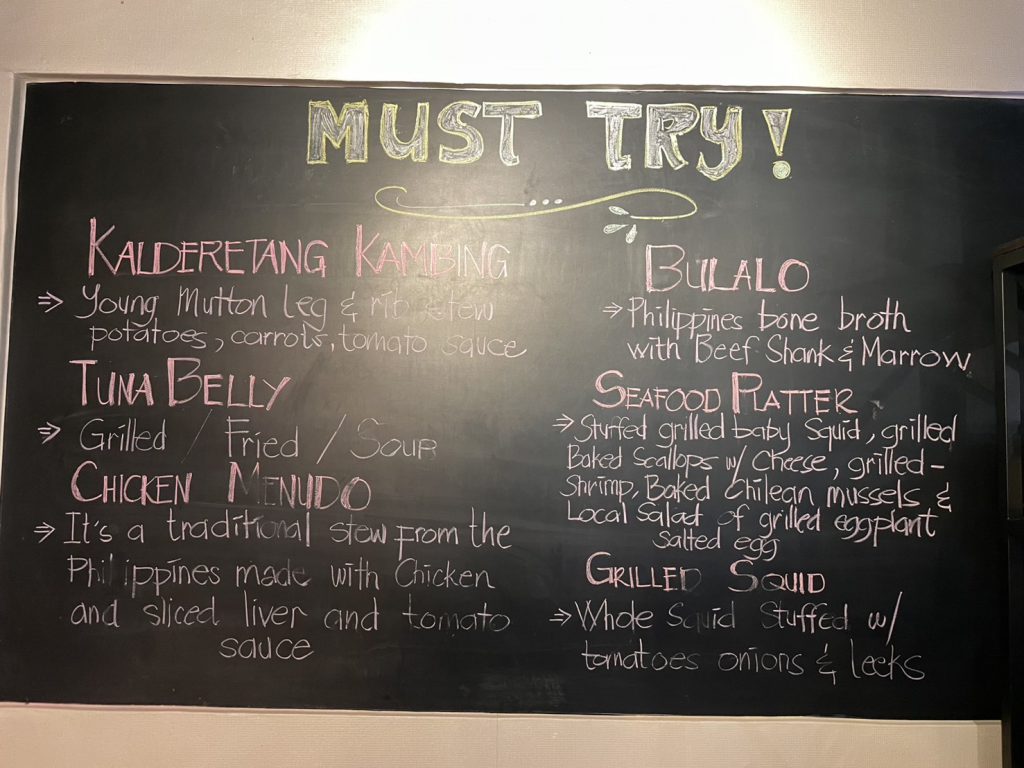 MUST TRY!
KALDERETANG KAMBING
⇒ Young Mutton leg & rib stew
potatoes, carrots, tomato sauce
TUNA BELLY
⇒ Grilled / Fried / Sour
CHICKEN MENUDO
⇒ It's a traditional stew from the
Philippines made with Chicken
and sliced liver and tomato
sauce
BULALO
⇒ Philippines bone broth
with Beef Shank & Marrow
SEAFOOD PLATTER
⇒ Stuffed grilled baby Squid, grilled
Baked Scallops w/ Cheese, grilled-
Shrimp, Baked Chilean mussels &
Local Salad of grilled eggplant
salted egg
GRILLED SQUID
⇒ Whole Squid Stuffed w/
tomatoes onions & leeks